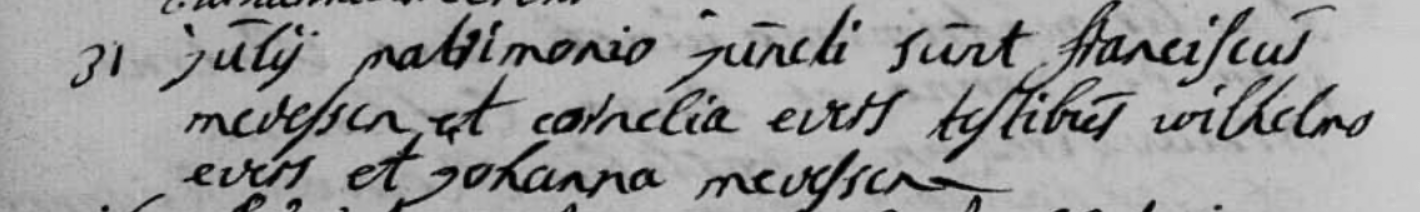 31 julij matrimonio juncti sunt franciscus
mevessen et cornelia evers testibus wilhelmo
evers et johanna mevessen